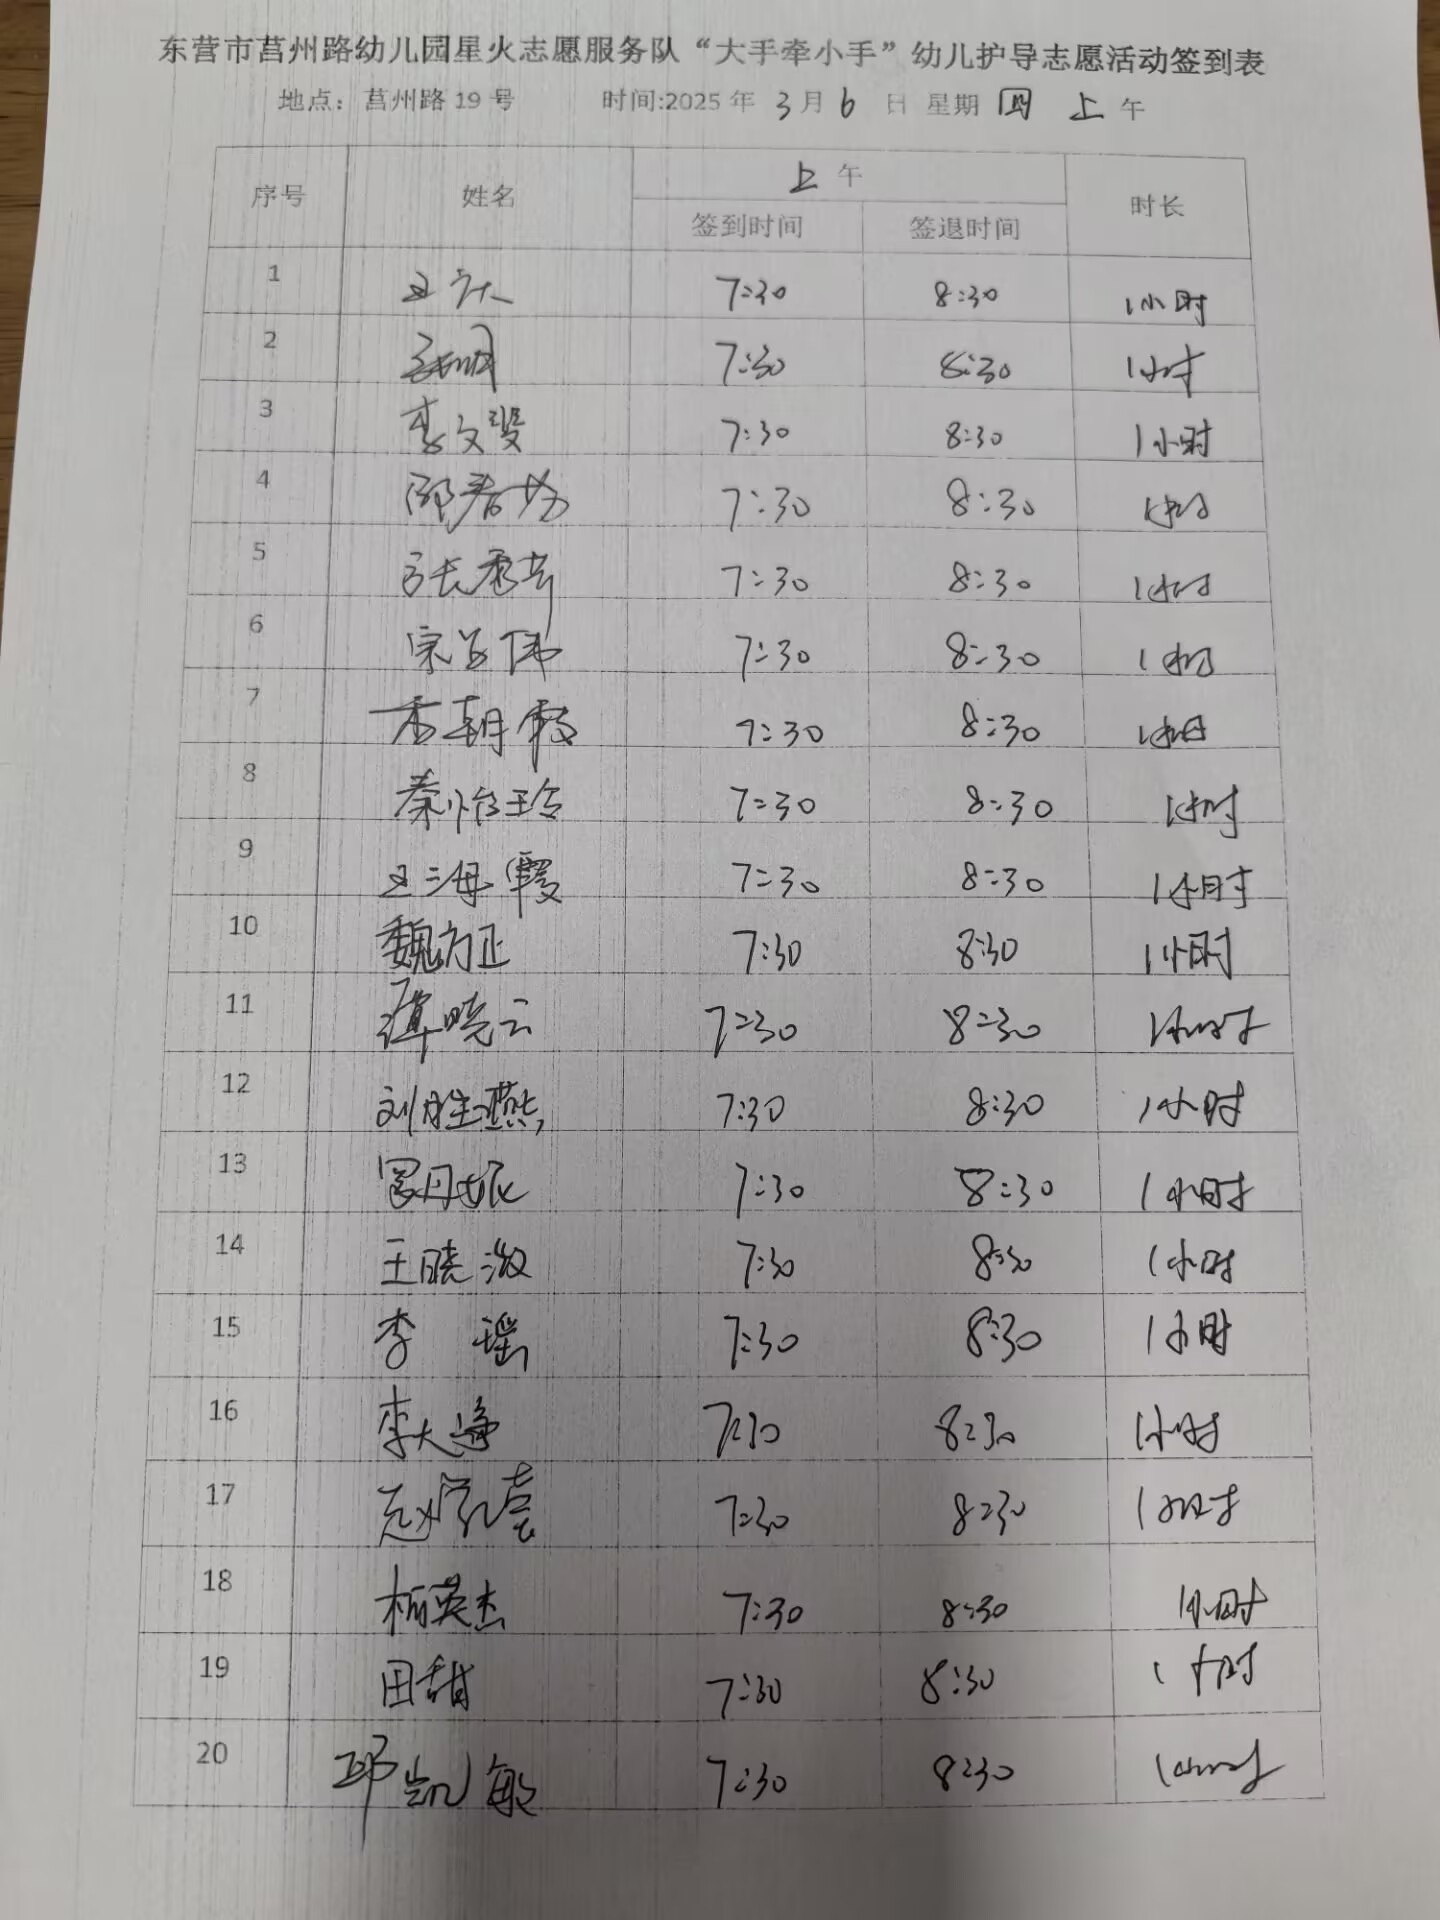 东营市莒州路幼儿园星火志愿服务队“大手牵小手”幼儿护导志愿活动签到表
地点：莒州路 19 号 时间:2025 年 3 月 6 日 星期 四 上 午
序号 姓名 上 午 时长
签到时间 签退时间
1 7:30 8:30 1小时
2 7:30 8:30 1小时
3 李文 7:30 8:30 1小时
4 邵春 7:30 8:30 1小时
5 张秀芹 7:30 8:30 1小时
6 宗 伟 7:30 8:30 1小时
7 李朝霞 7:30 8:30 1小时
8 秦怡玲 7:30 8:30 1小时
9 王海霞 7:30 8:30 1小时
10 魏方正 7:30 8:30 1小时
11 谭晓云 7:30 8:30 1小时
12 刘胜燕 7:30 8:30 1小时
13 丹妮 7:30 8:30 1小时
14 王晓 7:30 8:30 1小时
15 李 瑶 7:30 8:30 1小时
16 李大 7:30 8:30 1小时
17 7:30 8:30 1小时
18 柏英杰 7:30 8:30 1小时
19 田甜 7:30 8:30 1小时
20 邱凯敏 7:30 8:30 1小时